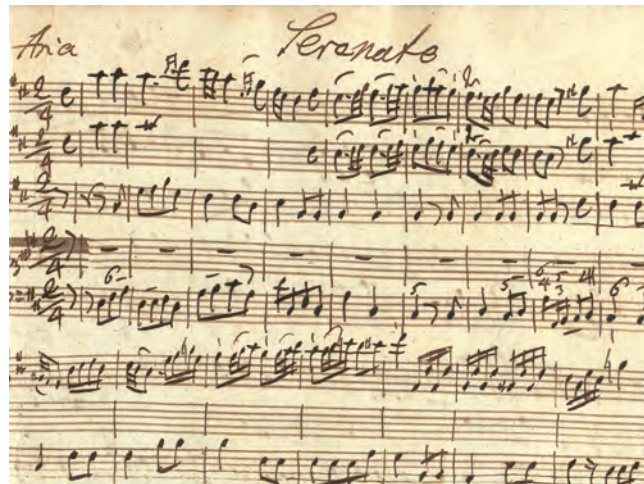 Aria Serenata